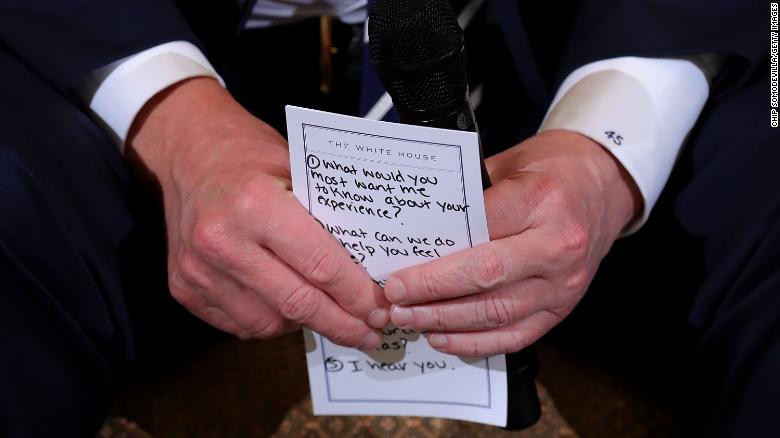 THE WHITE HOUSE
① What would you
most want me
to know about your
experience?
What can we do
help you feel
?
as?
⑤ I hear you.
45
CHIP SOMODEVILLA/GETTY IMAGES